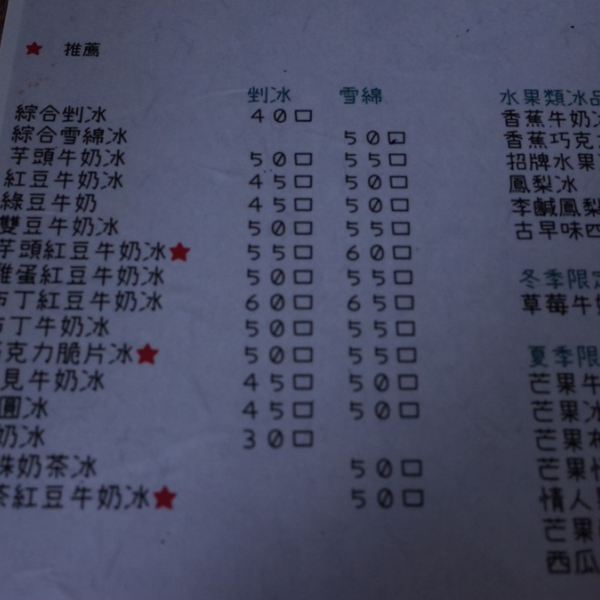 ★ 推薦
剉冰 雪綿
綜合剉冰 40□
綜合雪綿冰 50□
芋頭牛奶冰 50□ 55□
紅豆牛奶冰 45□ 50□
綠豆牛奶 45□ 50□
雙豆牛奶冰 50□ 55□
芋頭紅豆牛奶冰★ 55□ 60□
雞蛋紅豆牛奶冰 50□ 55□
布丁紅豆牛奶冰 60□ 65□
布丁牛奶冰 50□ 55□
巧克力脆片冰★ 50□ 55□
見牛奶冰 45□ 50□
圓冰 45□ 50□
奶冰 30□
珠奶茶冰 50□
茶紅豆牛奶冰★ 50□
水果類冰品
香蕉牛奶冰
香蕉巧克力
招牌水果
鳳梨冰
李鹹鳳梨
古早味四
冬季限定
草莓牛奶
夏季限
芒果牛
芒果冰
芒果
芒果情
情人
芒果
西瓜